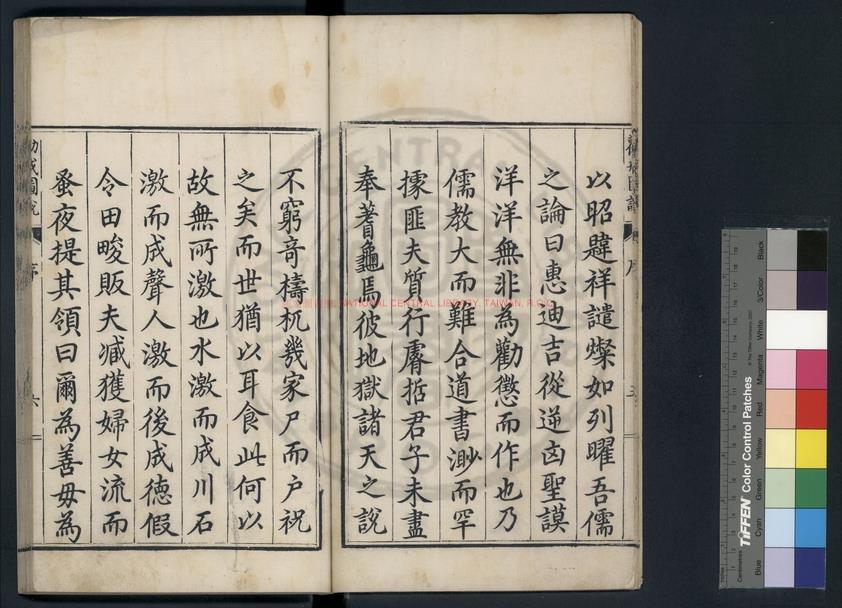 以昭韙祥譴燦如列曜吾儒
之論曰惠迪吉從逆凶聖謨
洋洋無非為勸懲而作也乃
儒教大而難合道書渺而罕
㨿匪夫質行膚哲君子未盡
奉蓍龜焉彼地獄諸天之說
不窮竒檮杌幾家尸而户祝
之矣而世猶以耳食此何以
故無所激也水激而成川石
激而成聲人激而後成德假
令田畯販夫臧獲婦女流而
蚤夜提其領曰爾為善毋為
勸戒圖說
序
六
NATIONAL CENTRAL LIBRARY, TAIWAN, R.O.C.
TIFFEN Color Control Patches
Blue
Cyan
Green
Yellow
Red
Magenta
White
3/Color
Black